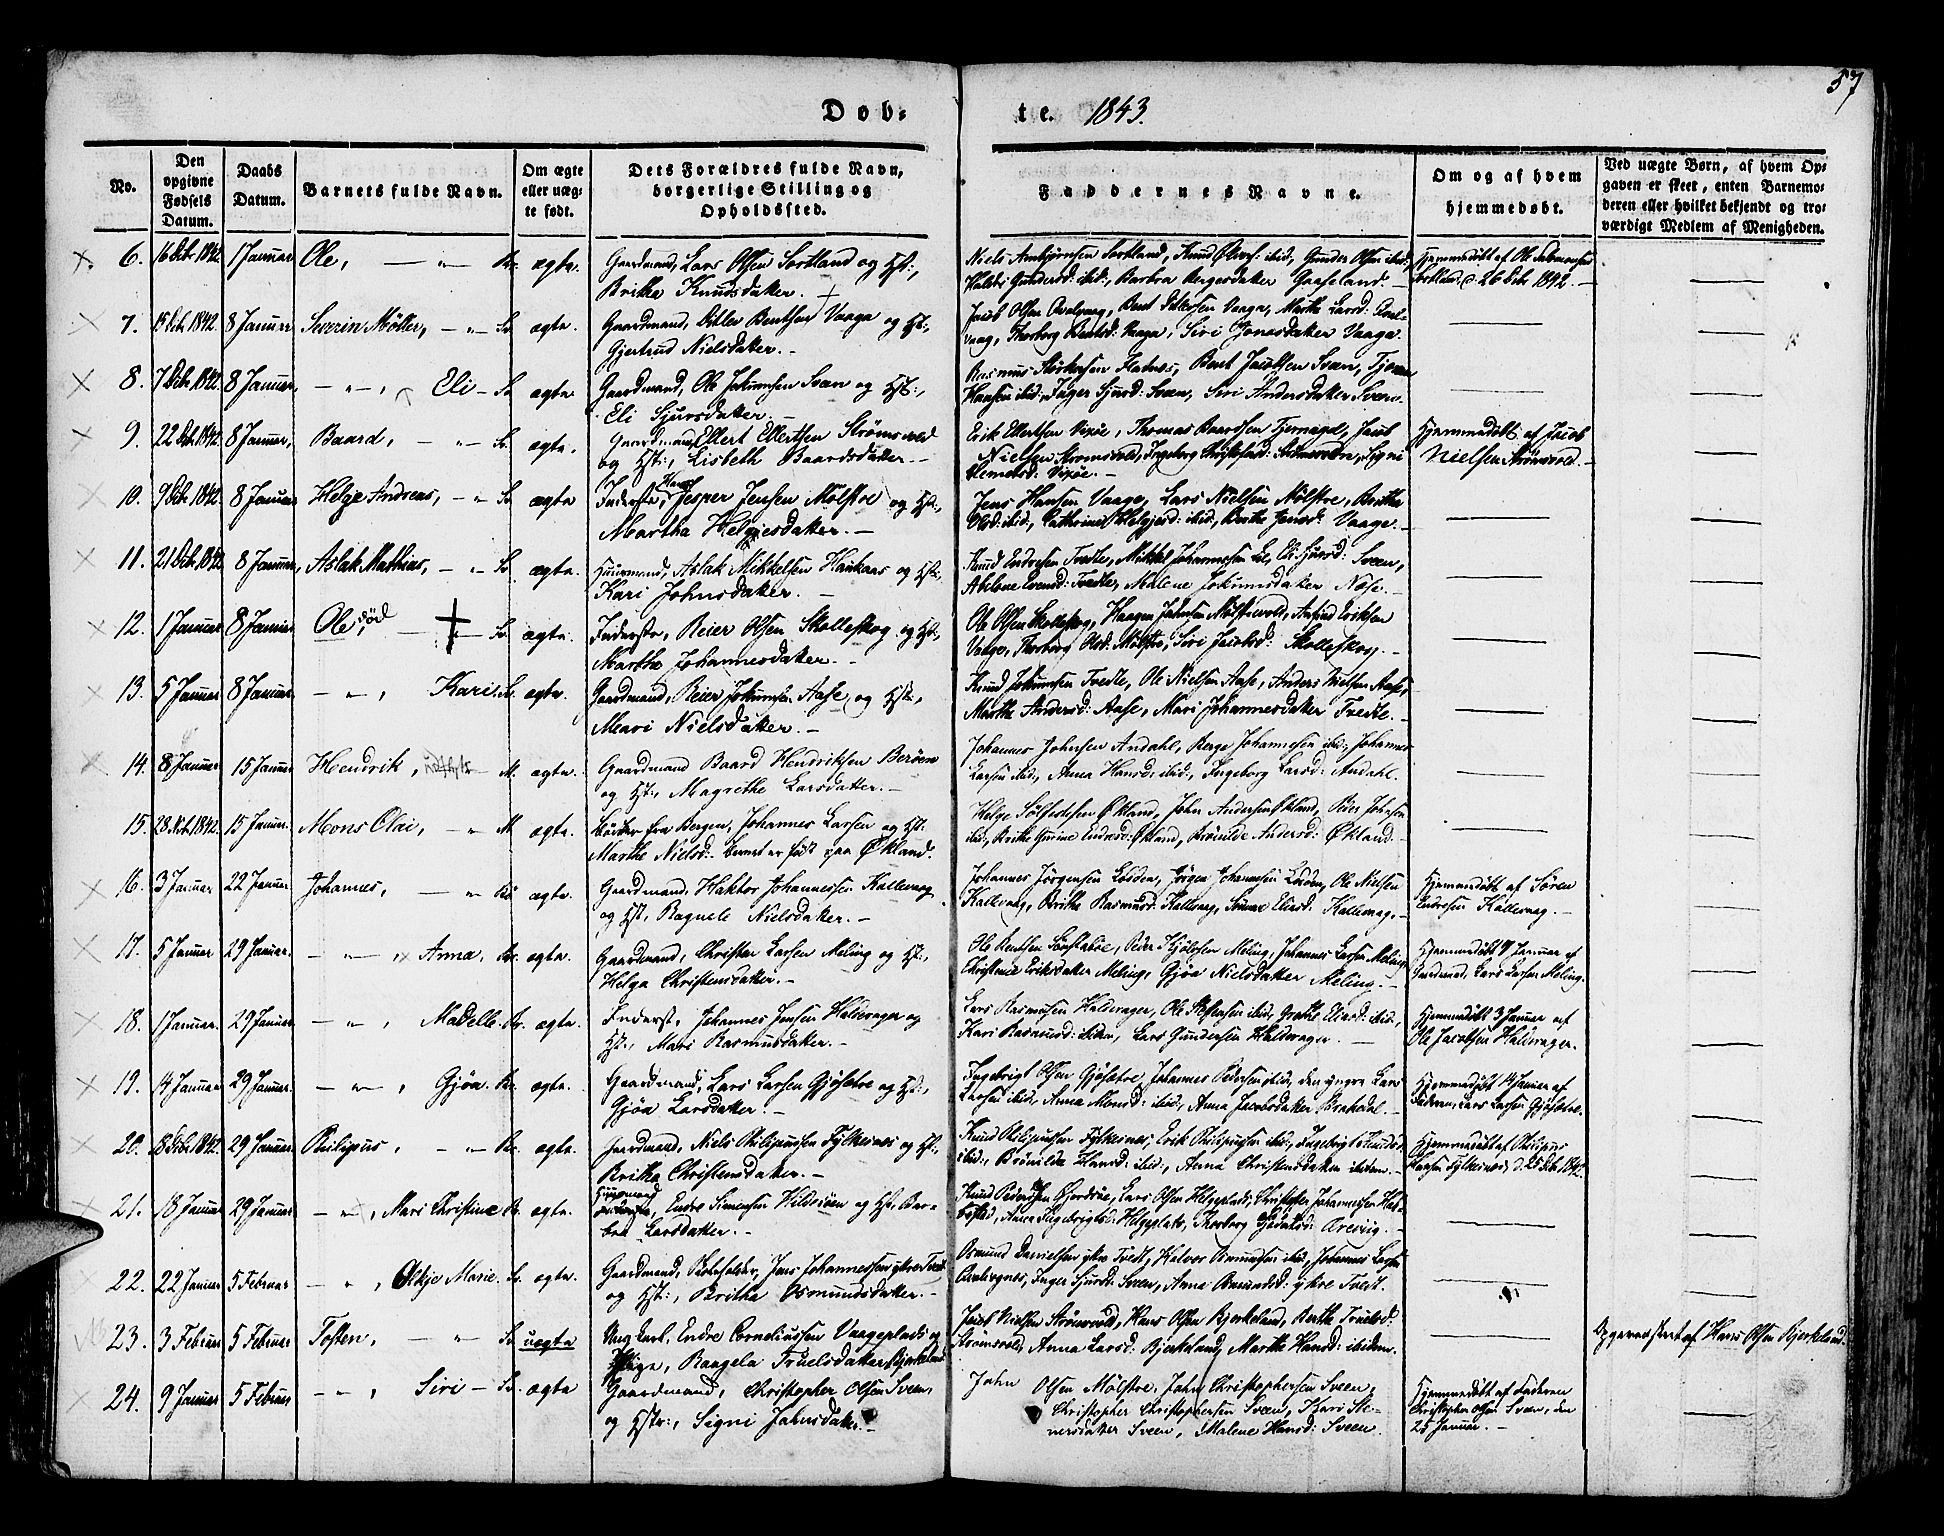 57
Døb-te. 1843.
No.
Den opgivne Fødsels Datum.
Daabs Datum.
Barnets fulde Navn.
Om ægte eller uæg-te født.
Dets Forældres fulde Navn, borgerlige Stilling og Opholdssted.
Faddernes Navne.
Om og af hvem hjemmedøbt.
Ved uægte Børn, af hvem Op-
gaven er skeet, enten Barnemo-
deren eller hvilket bekjendt og tro-
værdigt Medlem af Menigheden.
6. 16 Dcbr. 1842. 1 Januar Ole, ægte. Gaardmand, Lars Olsen Sortland og Hst:,
Britha Knudsdatter.
Niels Sortland, Knud ibid, Gunder Olsen ibid,
Gundersd: ibid, Barbra Bergesdatter Gaaseland.
Hjemmedøbt af Ole
Sortland, d. 26 Dcbr 1842.
7. 15 1842. 8 Januar Severin Möller, ægte. Gaardmand, Ditlev Bentsen Vaage og Hst:,
Gjertrud Nielsdatter.
Jacob Olsen Bent Vaage, Martha Larsd:
Thorborg Bentsd: Vaage, Siri Jonasdatter Vaage.
8. 7 Dcbr. 1842. 8 Januar, Eli ægte. Gaardmand, Ole Jokumsen Sveen og Hst:,
Eli Sjursdatter.
Rasmus Størkersen Flatnes, Bent Jacobsen Sveen,
Hansen ibid, Inger Sjursd: Sveen, Siri Andersdatter Sveen.
9. 22 1842. 8 Januar, Baard, ægte. Gaardmand Ellert Ellertsen Strømsvold
og Hst:, Lisbeth Baardsdatter.
Erik Ellertsen Vixøe, Thomas Baardsen Jacob
Nielsen Strømsvold, Ingeborg Signi
Vixøe.
Hjemmedøbt af Jacob
Nielsen Strømsvold.
10. 9 1842. 8 Januar Helge Andreas, ægte Inderste, Hans Jesper Jensen Mölstre og Hst:,
Martha Helgesdatter.
Jens Hansen Vaage, Lars Nielsen Mölstre, Britha
Olsd: ibid, Cathrine Helgesd: ibid, Berthe Jensd: Vaage.
11. 21 Dcbr. 1842 8 Januar, Aslak Mathias, ægte. Huusmand, Aslak Mikkelsen Haukaas og Hst:,
Kari Johnsdatter.
Knud Endresen Tvedte, Mikkel Johannesen Eli Sjursd: Sveen,
Abelone Tvedte, Malene Jokumsdatter
12. 1 Januar 8 Januar Ole, død ægte. Inderste, Reier Olsen Skolleskog og Hst:,
Marthe Johannesdatter.
Ole Olsen Skolleskog, Haagen Johnsen Mölstrevold, Eriksen
Vaage, Thorborg Olsd: Mölstre, Siri Jacobsd: Skolleskog.
13. 5 Januar 8 Januar Kari. ægte. Gaardmand, Reier Jokumsen Aase og Hst:,
Mari Nielsdatter.
Knud Jokumsen Tvedte, Ole Nielsen Aase, Anders Nielsen Aase,
Marthe Andersd: Aase, Mari Johannesdatter Tvedte.
14. 8 Januar 15 Januar Hendrik, M. ægte. Gaardmand Baard Hendriksen Berøen
og Hst:, Magrethe Larsdatter.
Johannes Johnsen Andahl, Berge Johannesen ibid, Johannes
Larsen ibid, Anna Hansd: ibid, Ingeborg Larsd: Andahl.
15. 28 1842. 15 Januar. Mons Olai, M. ægte. fra Bergen, Johannes Larsen og Hst:
Marthe Nielsd: barnet er født paa Økland.
Helge Sølfestsen Økland, John Andersen Økland, Peder Johnsen
ibid, Brithe Endresd: Økland, Brønilde Andersd: Økland.
16. 3 Januar 22 Januar. Johannes, ægte. Gaardmand, Haktor Johannessen Kallevaag
og Hst, Ragnele Nielsdatter.
Johannes Jörgensen Jörgen Johannesen Ole Nielsen
Kallevaag, Britha Rasmusd: Kallevaag, Eliasd: Kallevaag.
Hjemmedøbt af Søren
Endresen Kallevaag.
17. 5 Januar 29 Januar. Anna, ægte. Gaardmand, Christen Larsen Meling og Hst:,
Helga Christensdatter.
Ole Bentsen Peder Meling, Johannes Larsen Meling,
Christense Eriksdatter Meling, Gjøa Nielsdatter Meling.
Hjemmedøbt Januar af
Gaardmand, Lars Larsen Meling.
18. 1 Januar. 29 Januar. Madelle. ægte. Inderst, Johannes Jensen Haldevager og
Hst:, Mari Rasmusdatter.
Lars Rasmusen Haldevager, Ole ibid, Grethe Eliasd: ibid,
Kari Rasmusd: ibidem, Lars Gundersen Haldevager.
Hjemmedøbt 3 Januar af
Ole Jacobsen Haldevager.
19. 14 Januar 29 Januar. Gjøa. ægte. Gaardmand, Lars Larsen Gjøsætre og Hst:,
Gjøa Larsdatter.
Ingebrigt Olsen Gjøsætre, Johannes Pedersen ibid, den yngre Lars
Larsen ibid, Anna Monsd: ibid, Anna Jacobsdatter
Hjemmedøbt 14 Januar af
Faderen, Lars Larsen Gjøsætre.
20. 18 Dcbr. 1842. 29 Januar. Philippus, ægte. Gaardmand, Niels Philippussen Fylkesnes og Hst:,
Britha Christensdatter.
Knud Philippussen Fylkesnes, Erik Philippussen ibid, Ingeborg Knudsd:
ibid, Brønilda Hansd: ibid, Anna Christensdatter ibidem.
Hjemmedøbt af Philippus
Hansen Fylkesnes, d. 25 Dcbr 1842.
21. 18 Januar 29 Januar. Mari Christine ægte. Huusmand Endre Simensen Hildeöen og Hst. Bar-
bra Larsdatter.
Knud Pedersen Lars Olsen Helgeplads, Christofer Johannesen
Anna Ingebrigtsd: Helgeplads, Thorborg
22. 22 Januar 5 Februar Olkje Marie. ægte. Gaardmand, Jens Johannessen ytre Tvedt
og Hst:, Britha Osmundsdatter.
Osmund Danielsen ytre Tvedt, Halvor Osmundsen ibid, Johannes Larsen
Inger Sjursd: Sveen, Anna Osmundsd: ytre Tvedt.
23. 3 Februar 5 Februar Tosten, uægte Ung Karl. Endre Corneliussen Vaageplads og
Pige, Raagela Truelsdatter Bjerkeland
Jacob Nielsen Strømsvold, Hans Olsen Bjerkeland, Berthe Truelsd:
Strømsvold, Anna Larsd: Bjerkeland, Marthe Hansd: ibidem.
Opgaven skeet af Hans Olsen Bjerkeland.
24. 9 Januar 5 Februar Siri ægte Gaardmand, Christopher Olsen Sveen,
og Hst:, Signi Jahnsdatter.
John Olsen Mölstre, John Christophersen Sveen,
Christopher Christophersen Sveen, Kari Ste-
nersdatter Sveen, Malene Hansd: Sveen.
Hjemmedøbt af Faderen
Christopher Olsen Sveen, den
25 Januar.